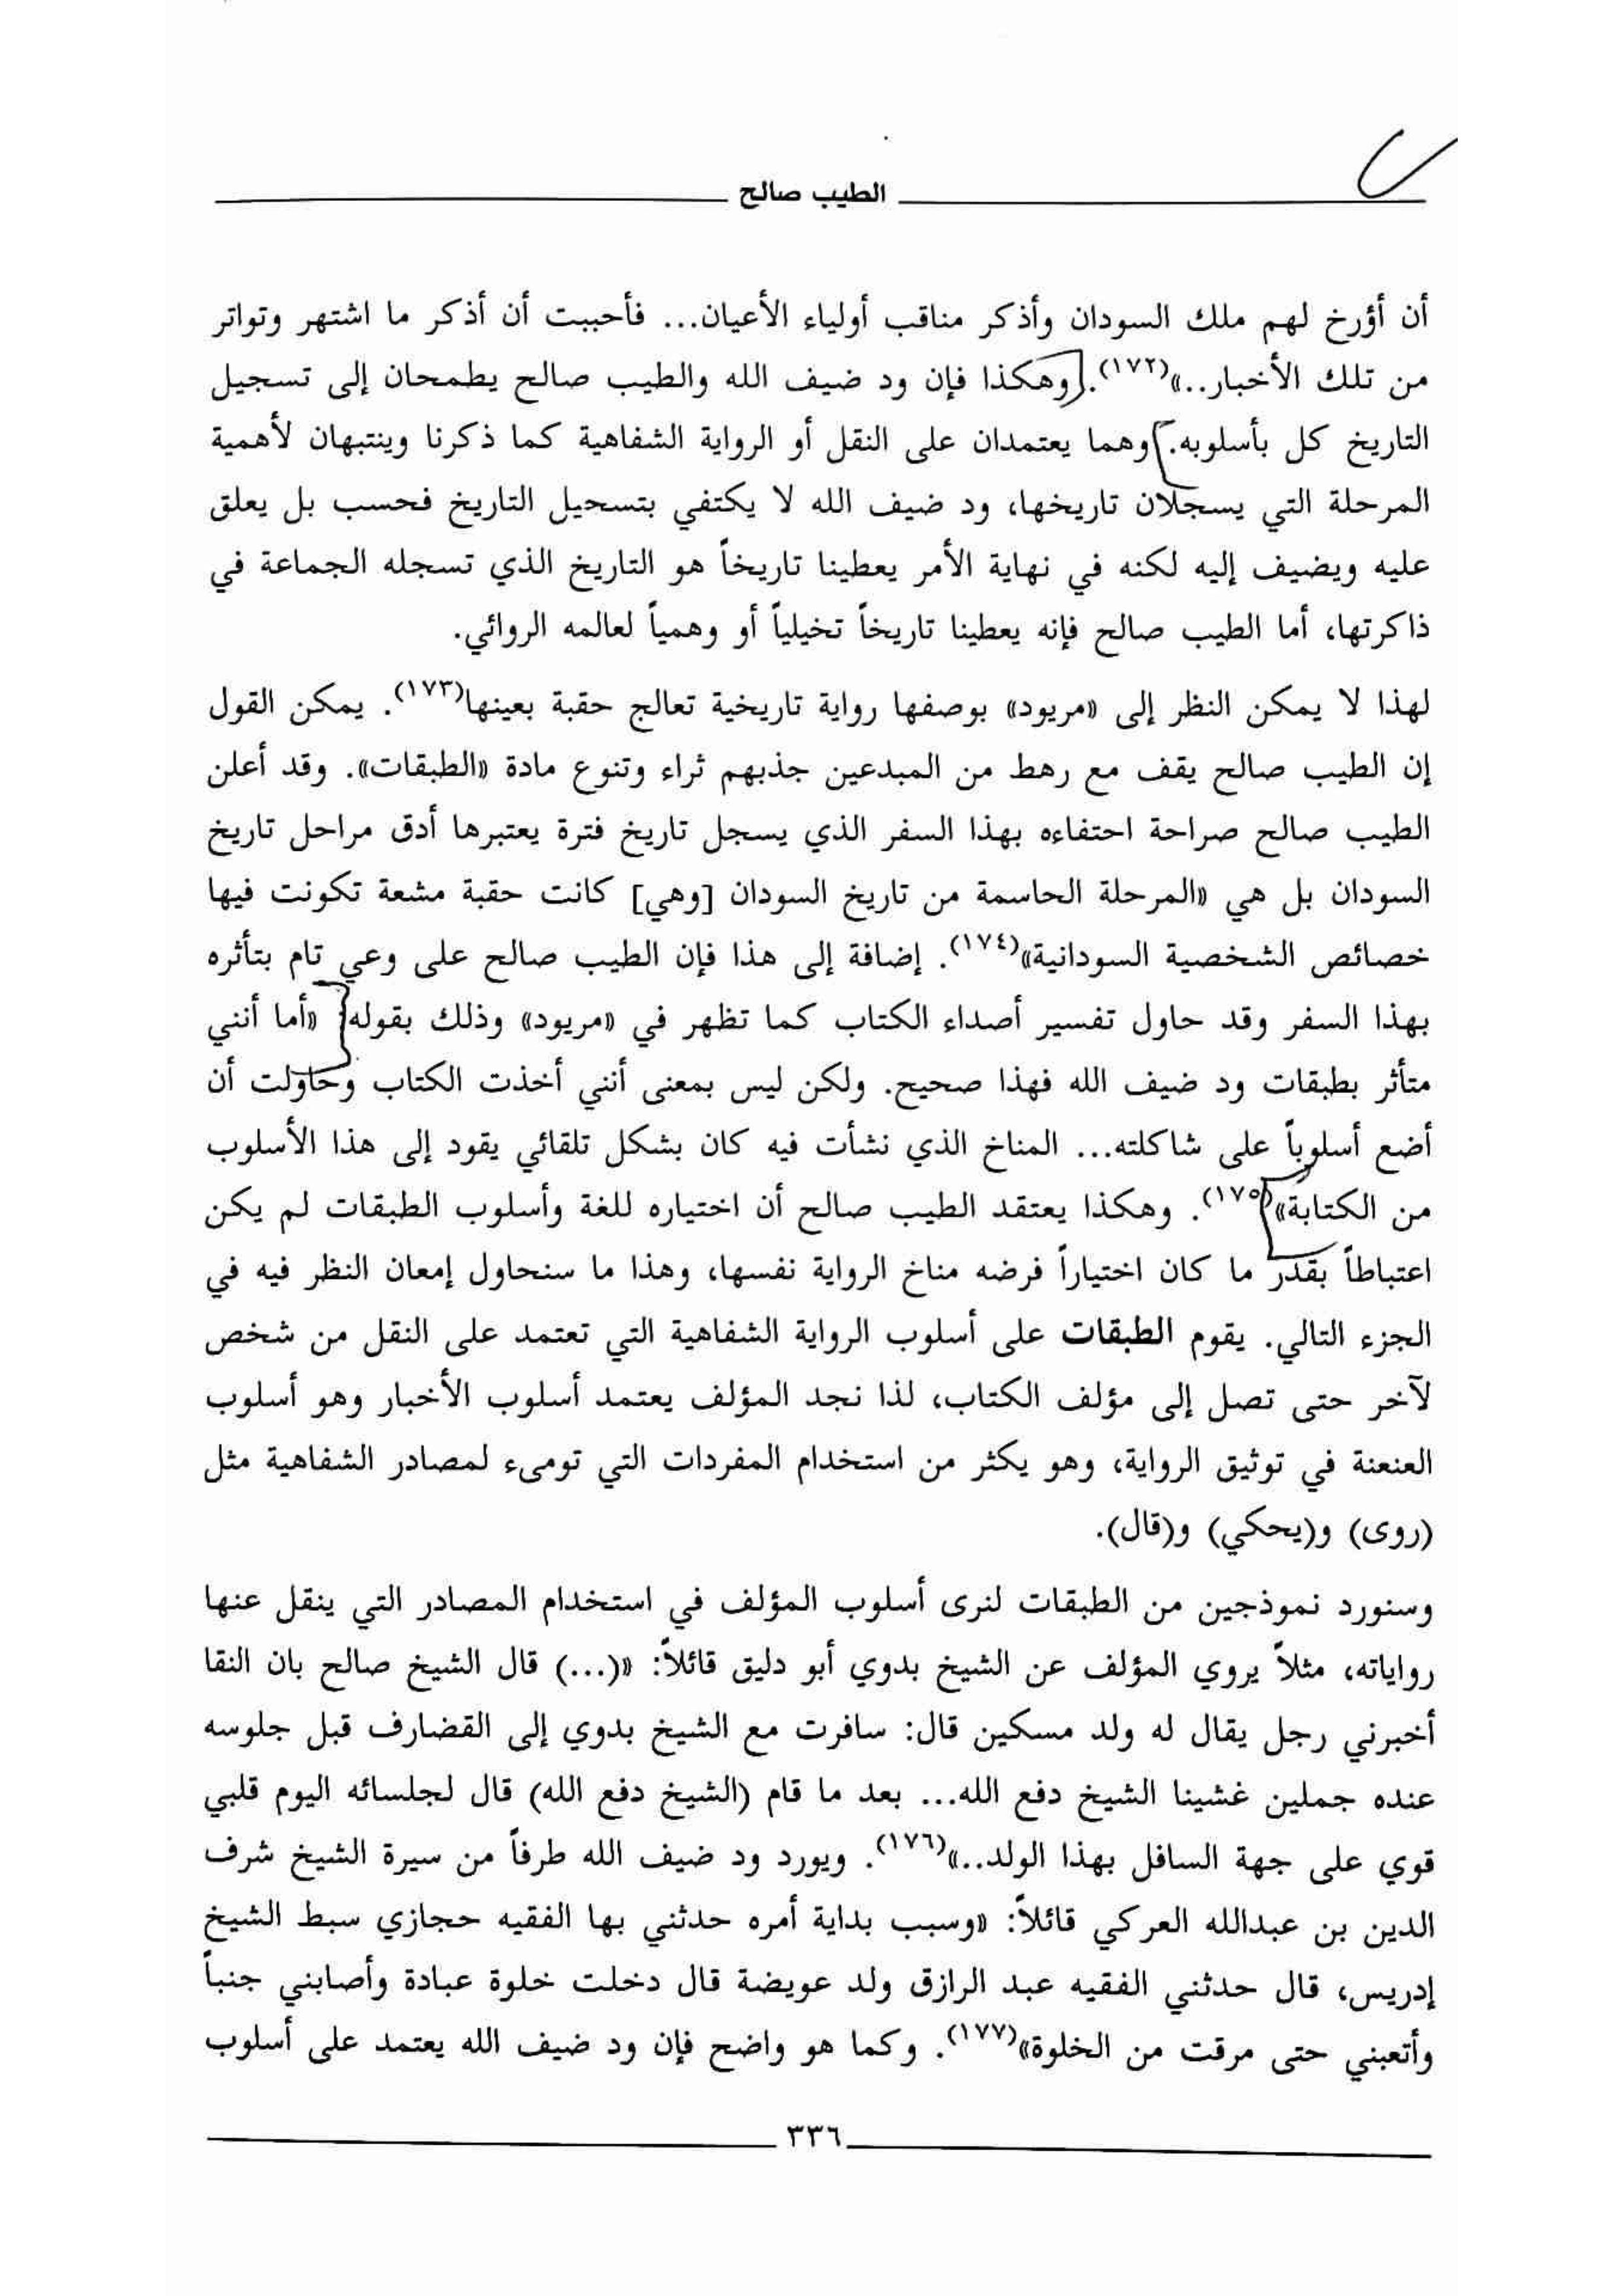 الطيب صالح
أن أؤرخ لهم ملك السودان وأذكر مناقب أولياء الأعيان... فأحببت أن أذكر ما اشتهر وتواتر
من تلك الأخبار..»(١٧٢). وهكذا فإن ود ضيف الله والطيب صالح يطمحان إلى تسجيل
التاريخ كل بأسلوبه. وهما يعتمدان على النقل أو الرواية الشفاهية كما ذكرنا وينتبهان لأهمية
المرحلة التي يسجلان تاريخها، ود ضيف الله لا يكتفي بتسحيل التاريخ فحسب بل يعلق
عليه ويضيف إليه لكنه في نهاية الأمر يعطينا تاريخاً هو التاريخ الذي تسجله الجماعة في
ذاكرتها، أما الطيب صالح فإنه يعطينا تاريخاً تخيلياً أو وهمياً لعالمه الروائي.
لهذا لا يمكن النظر إلى «مريود» بوصفها رواية تاريخية تعالج حقبة بعينها(١٧٣). يمكن القول
إن الطيب صالح يقف مع رهط من المبدعين جذبهم ثراء وتنوع مادة «الطبقات». وقد أعلن
الطيب صالح صراحة احتفاءه بهذا السفر الذي يسجل تاريخ فترة يعتبرها أدق مراحل تاريخ
السودان بل هي «المرحلة الحاسمة من تاريخ السودان [وهي] كانت حقبة مشعة تكونت فيها
خصائص الشخصية السودانية»(١٧٤). إضافة إلى هذا فإن الطيب صالح على وعي تام بتأثره
بهذا السفر وقد حاول تفسير أصداء الكتاب كما تظهر في «مريود» وذلك بقوله: «أما أنني
متأثر بطبقات ود ضيف الله فهذا صحيح. ولكن ليس بمعنى أنني أخذت الكتاب وحاولت أن
أضع أسلوباً على شاكلته... المناخ الذي نشأت فيه كان بشكل تلقائي يقود إلى هذا الأسلوب
من الكتابة»(١٧٥). وهكذا يعتقد الطيب صالح أن اختياره للغة وأسلوب الطبقات لم يكن
اعتباطاً بقدر ما كان اختياراً فرضه مناخ الرواية نفسها، وهذا ما سنحاول إمعان النظر فيه في
الجزء التالي. يقوم الطبقات على أسلوب الرواية الشفاهية التي تعتمد على النقل من شخص
لآخر حتى تصل إلى مؤلف الكتاب، لذا نجد المؤلف يعتمد أسلوب الأخبار وهو أسلوب
العنعنة في توثيق الرواية، وهو يكثر من استخدام المفردات التي تومىء لمصادر الشفاهية مثل
(روى) و(يحكي) و(قال).
وسنورد نموذجين من الطبقات لنرى أسلوب المؤلف في استخدام المصادر التي ينقل عنها
رواياته، مثلاً يروي المؤلف عن الشيخ بدوي أبو دليق قائلاً: «(...) قال الشيخ صالح بان النقا
أخبرني رجل يقال له ولد مسكين قال: سافرت مع الشيخ بدوي إلى القضارف قبل جلوسه
عنده جملين غشينا الشيخ دفع الله... بعد ما قام (الشيخ دفع الله) قال لجلسائه اليوم قلبي
قوي على جهة السافل بهذا الولد..»(١٧٦). ويورد ود ضيف الله طرفاً من سيرة الشيخ شرف
الدين بن عبدالله العركي قائلاً: «وسبب بداية أمره حدثني بها الفقيه حجازي سبط الشيخ
إدريس، قال حدثني الفقيه عبد الرازق ولد عويضة قال دخلت خلوة عبادة وأصابني جنباً
وأتعبني حتى مرقت من الخلوة»(١٧٧). وكما هو واضح فإن ود ضيف الله يعتمد على أسلوب
٣٣٦